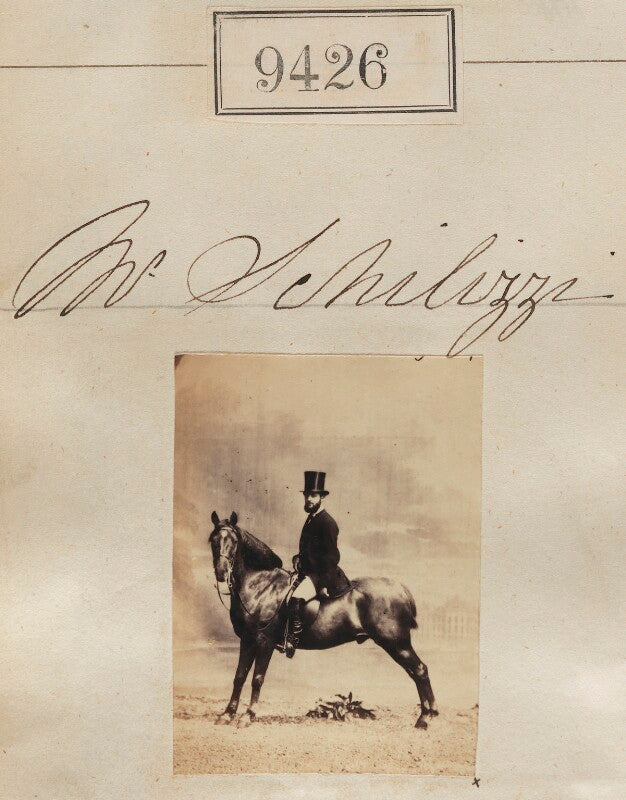 9426
Mr Schilizzi